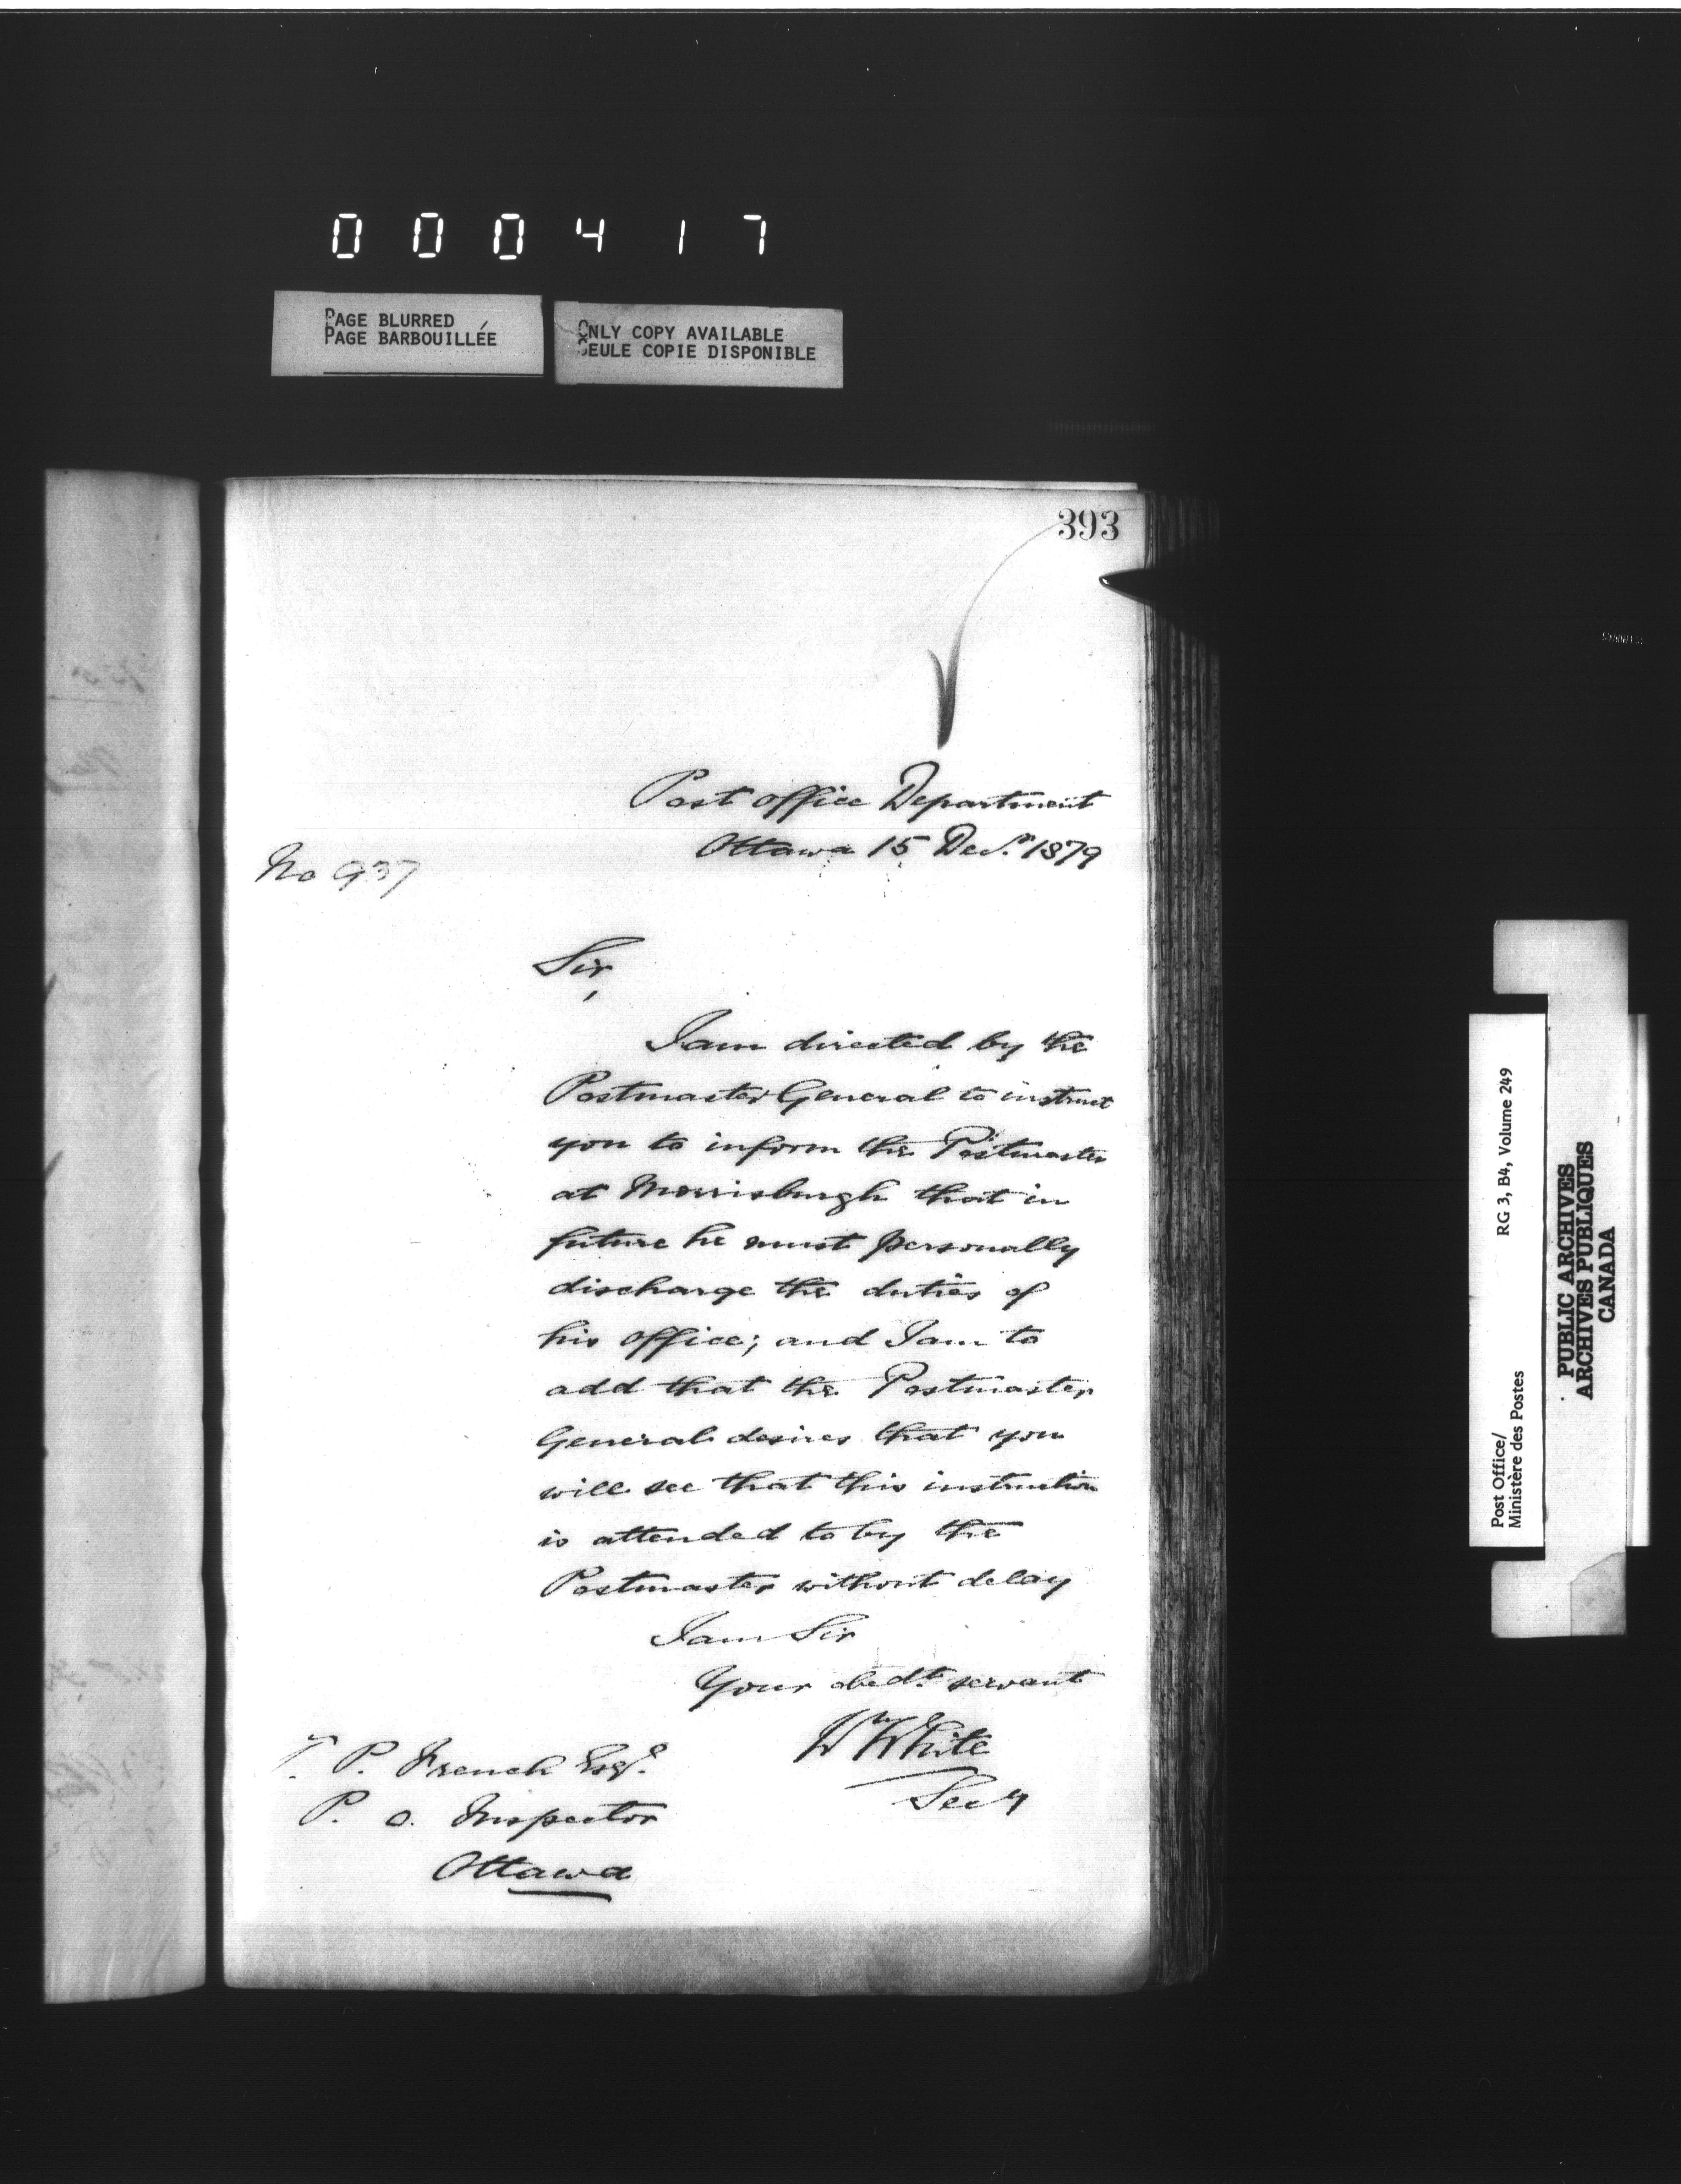 000417
PAGE BLURRED
PAGE BARBOUILLÉE
ONLY COPY AVAILABLE
SEULE COPIE DISPONIBLE
393
Post Office Department
Ottawa 15 Dec.r 1879
No 937
Sir,
I am directed by the
Postmaster General to instruct
you to inform the Postmaster
at Morrisburgh that in
future he must personally
discharge the duties of
his office; and I am to
add that the Postmaster
General desires that you
will see that this instruction
is attended to by the
Postmaster without delay
I am Sir
Your obedt. servant
Wm White
Secy
T. P. French Esqr.
P. O. Inspector
Ottawa
Post Office/
Ministère des Postes
RG 3, B4, Volume 249
PUBLIC ARCHIVES
ARCHIVES PUBLIQUES
CANADA